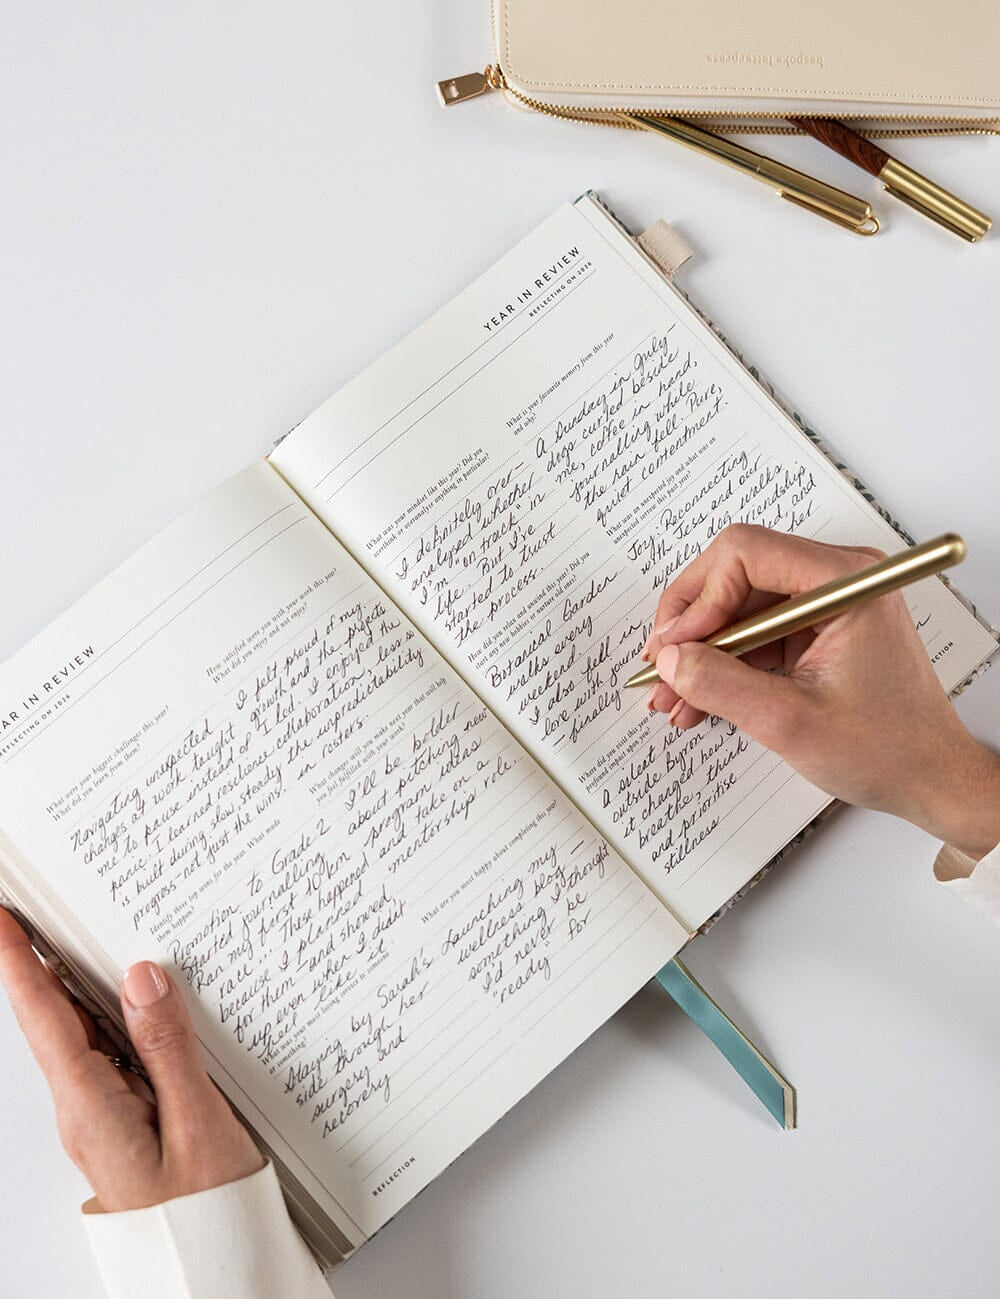 bespoke letterpress
YEAR IN REVIEW
REFLECTING ON 2026
What were your biggest challenges this year?
What did you learn from them?
Navigating unexpected
changes at work taught
me to pause instead of
panic. I learned resilience
is built during slow, steady
progress—not just the wins.
Identify three top wins for the year. What made
them happen?
Promotion to Grade 2
Started journalling
Ran my first 10km
race... These happened
because I planned
for them—and showed
up even when I didn't
feel like it.
What was your most loving service to someone
or something?
Staying by Sarah's
side through her
surgery and
recovery
How satisfied were you with your work this year?
What did you enjoy and not enjoy?
I felt proud of my
growth and the projects
I led. I enjoyed the
collaboration, less so
the unpredictability
in rosters.
What changes will you make next year that will help
you feel fulfilled with your work?
I'll be bolder
about pitching new
program ideas
and take on a
mentorship role.
What are you most happy about completing this year?
Launching my
wellness blog—
something I thought
I'd never be
"ready" for
REFLECTION
YEAR IN REVIEW
REFLECTING ON 2026
What was your mindset like this year? Did you
overthink or overanalyse anything in particular?
I definitely over-
analysed whether
I'm "on track" in
life... But I've
started to trust
the process.
How did you relax and unwind this year? Did you
start any new hobbies or nurture old ones?
Botanical Garden
walks every
weekend.
I also fell in
love with journal
—finally
Where did you visit this
profound impact upon you?
A silent
outside Byron
it changed how I
breathe, think
and prioritise
stillness
What is your favourite memory from this year
and why?
A Sunday in July—
dogs curled beside
me, coffee in hand,
journalling while
the rain fell. Pure,
quiet contentment.
What was an unexpected joy and what was an
unexpected sorrow this past year?
Joy: Reconnecting
with Jess and our
weekly dog walks
friendships
and
her
REFLECTION